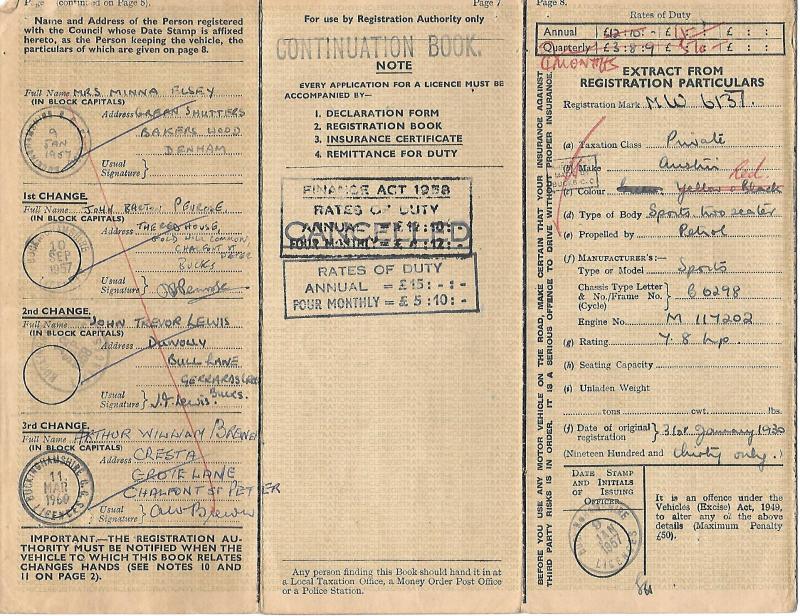 Page (continued on Page 8).
Name and Address of the Person registered
with the Council whose Date Stamp is affixed
hereto, as the Person keeping the vehicle, the
particulars of which are given on page 8.
Full Name MRS MINNA ELSEY
(IN BLOCK CAPITALS)
Address GREEN SHUTTERS
BAKERS WOOD
DENHAM
9
JAN
1957
Usual
Signature
1st CHANGE.
Full Name JOHN BARTON PENROSE
(IN BLOCK CAPITALS)
Address THE RED HOUSE,
GOLD HILL COMMON
CHALFONT ST PETER
BUCKS
BUCKINGHAMSHIRE
10
SEP
1957
Usual
Signature
2nd CHANGE.
Full Name JOHN TREVOR LEWIS
(IN BLOCK CAPITALS)
Address
BULL LANE
GERRARDS CROSS
BUCKS.
Usual
Signature J.T. Lewis
3rd CHANGE.
Full Name ARTHUR WILLIAM BREWER
(IN BLOCK CAPITALS)
Address CRESTA
GROVE LANE
CHALFONT ST PETER
BUCKINGHAMSHIRE C.C.
11
MAR
1960
LICENCES
Usual
Signature AW Brewer
IMPORTANT.—THE REGISTRATION AU-
THORITY MUST BE NOTIFIED WHEN THE
VEHICLE TO WHICH THIS BOOK RELATES
CHANGES HANDS (SEE NOTES 10 AND
11 ON PAGE 2).
Page 7
For use by Registration Authority only
CONTINUATION BOOK.
NOTE
EVERY APPLICATION FOR A LICENCE MUST BE
ACCOMPANIED BY—
1. DECLARATION FORM
2. REGISTRATION BOOK
3. INSURANCE CERTIFICATE
4. REMITTANCE FOR DUTY
FINANCE ACT 1958
RATES OF DUTY
ANNUAL = £12:10:-
FOUR MONTHLY = £4:12:-
CANCELLED
RATES OF DUTY
ANNUAL = £15:-:-
FOUR MONTHLY = £5:10:-
Any person finding this Book should hand it in at
a Local Taxation Office, a Money Order Post Office
or a Police Station.
Page 8.
Rates of Duty
Annual £12:10:- £ : : £ : :
Quarterly £3:8:9 £ : : £ : :
4 MONTHS
EXTRACT FROM
REGISTRATION PARTICULARS
Registration Mark MW 6137.
(a) Taxation Class Private
(b) Make Austin
Red
(c) Colour yellow & black
(d) Type of Body Sports two seater
(e) Propelled by Petrol
(f) MANUFACTURER'S:—
Type or Model Sports
Chassis Type Letter
& No./Frame No. B 6298
(Cycle)
Engine No. M 117202
(g) Rating 7.8 h.p.
(h) Seating Capacity
(i) Unladen Weight
tons cwt. lbs.
(j) Date of original
registration 31st January 1930
(Nineteen Hundred and thirty only.)
DATE STAMP
AND INITIALS
OF ISSUING
OFFICER
9
JAN
1957
It is an offence under the
Vehicles (Excise) Act, 1949,
to alter any of the above
details (Maximum Penalty
£50).
BEFORE YOU USE ANY MOTOR VEHICLE ON THE ROAD, MAKE CERTAIN THAT YOUR INSURANCE AGAINST
THIRD PARTY RISKS IS IN ORDER. IT IS A SERIOUS OFFENCE TO DRIVE WITHOUT PROPER INSURANCE.